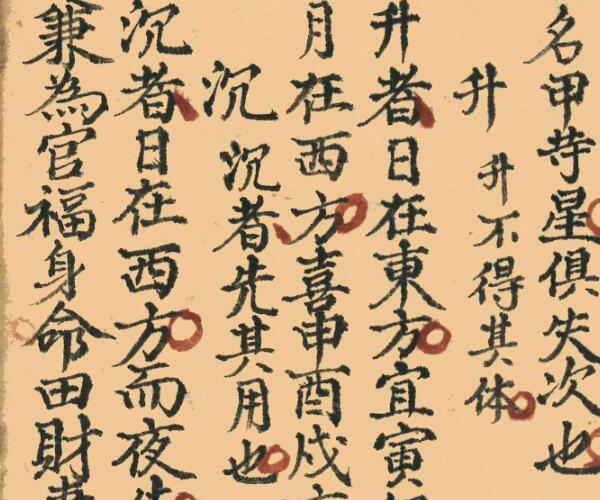 名甲寺星俱失次也
升 升不得其体
升者日在東方宜寅
月在西方喜申酉戍
沉 沉者先其用也
沉者日在西方而夜
兼為官福身命田財